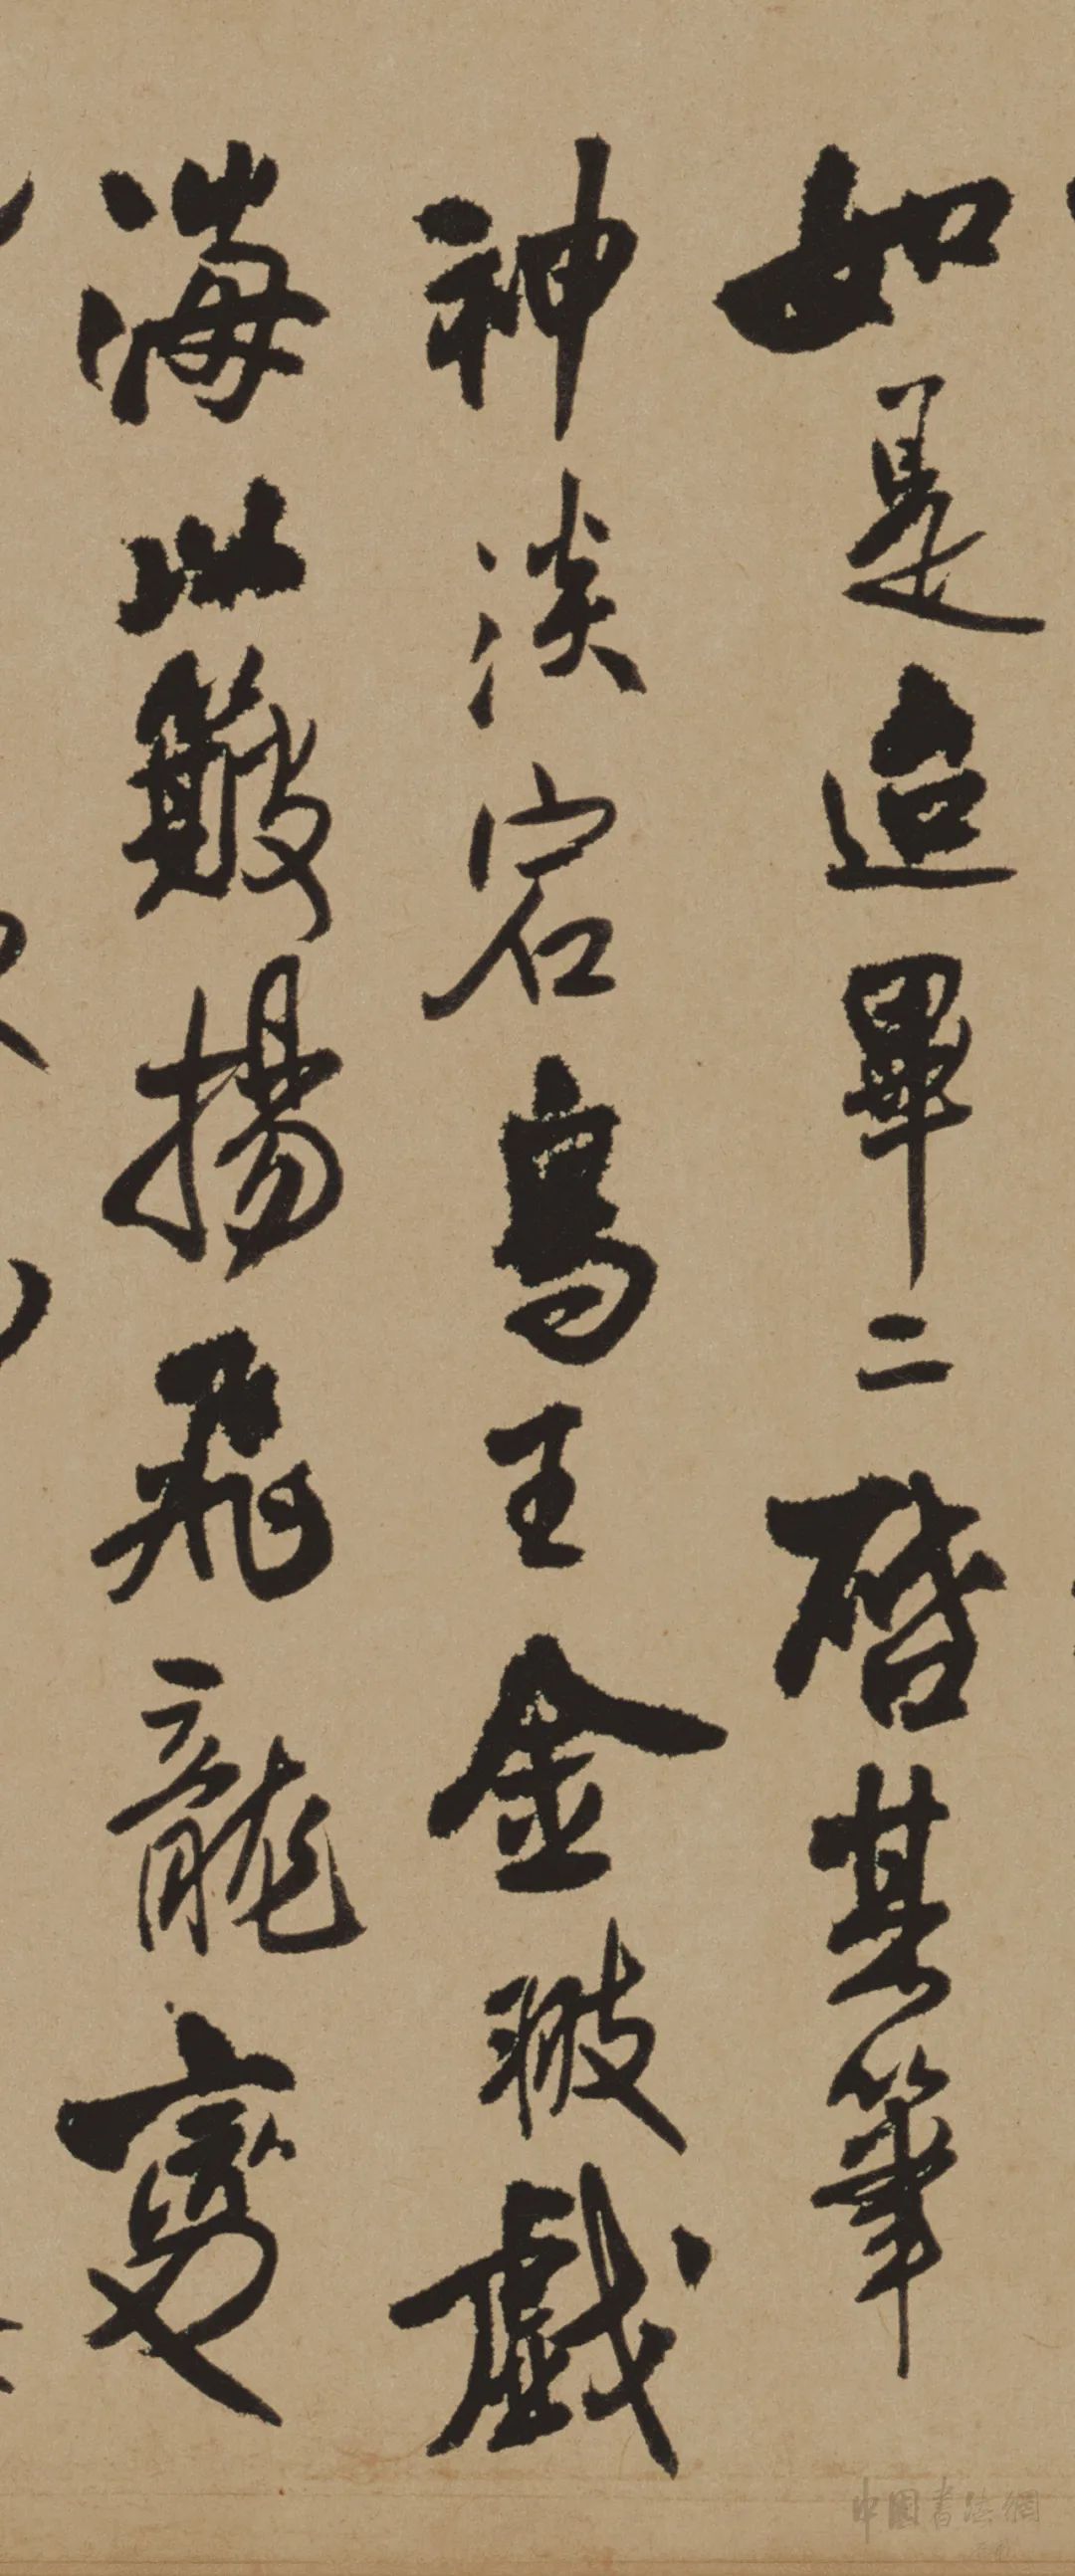 如是迨畢二啓其筆
神淡宕鳥王金翅戲
海以簸揚飛龍變
中國書法網